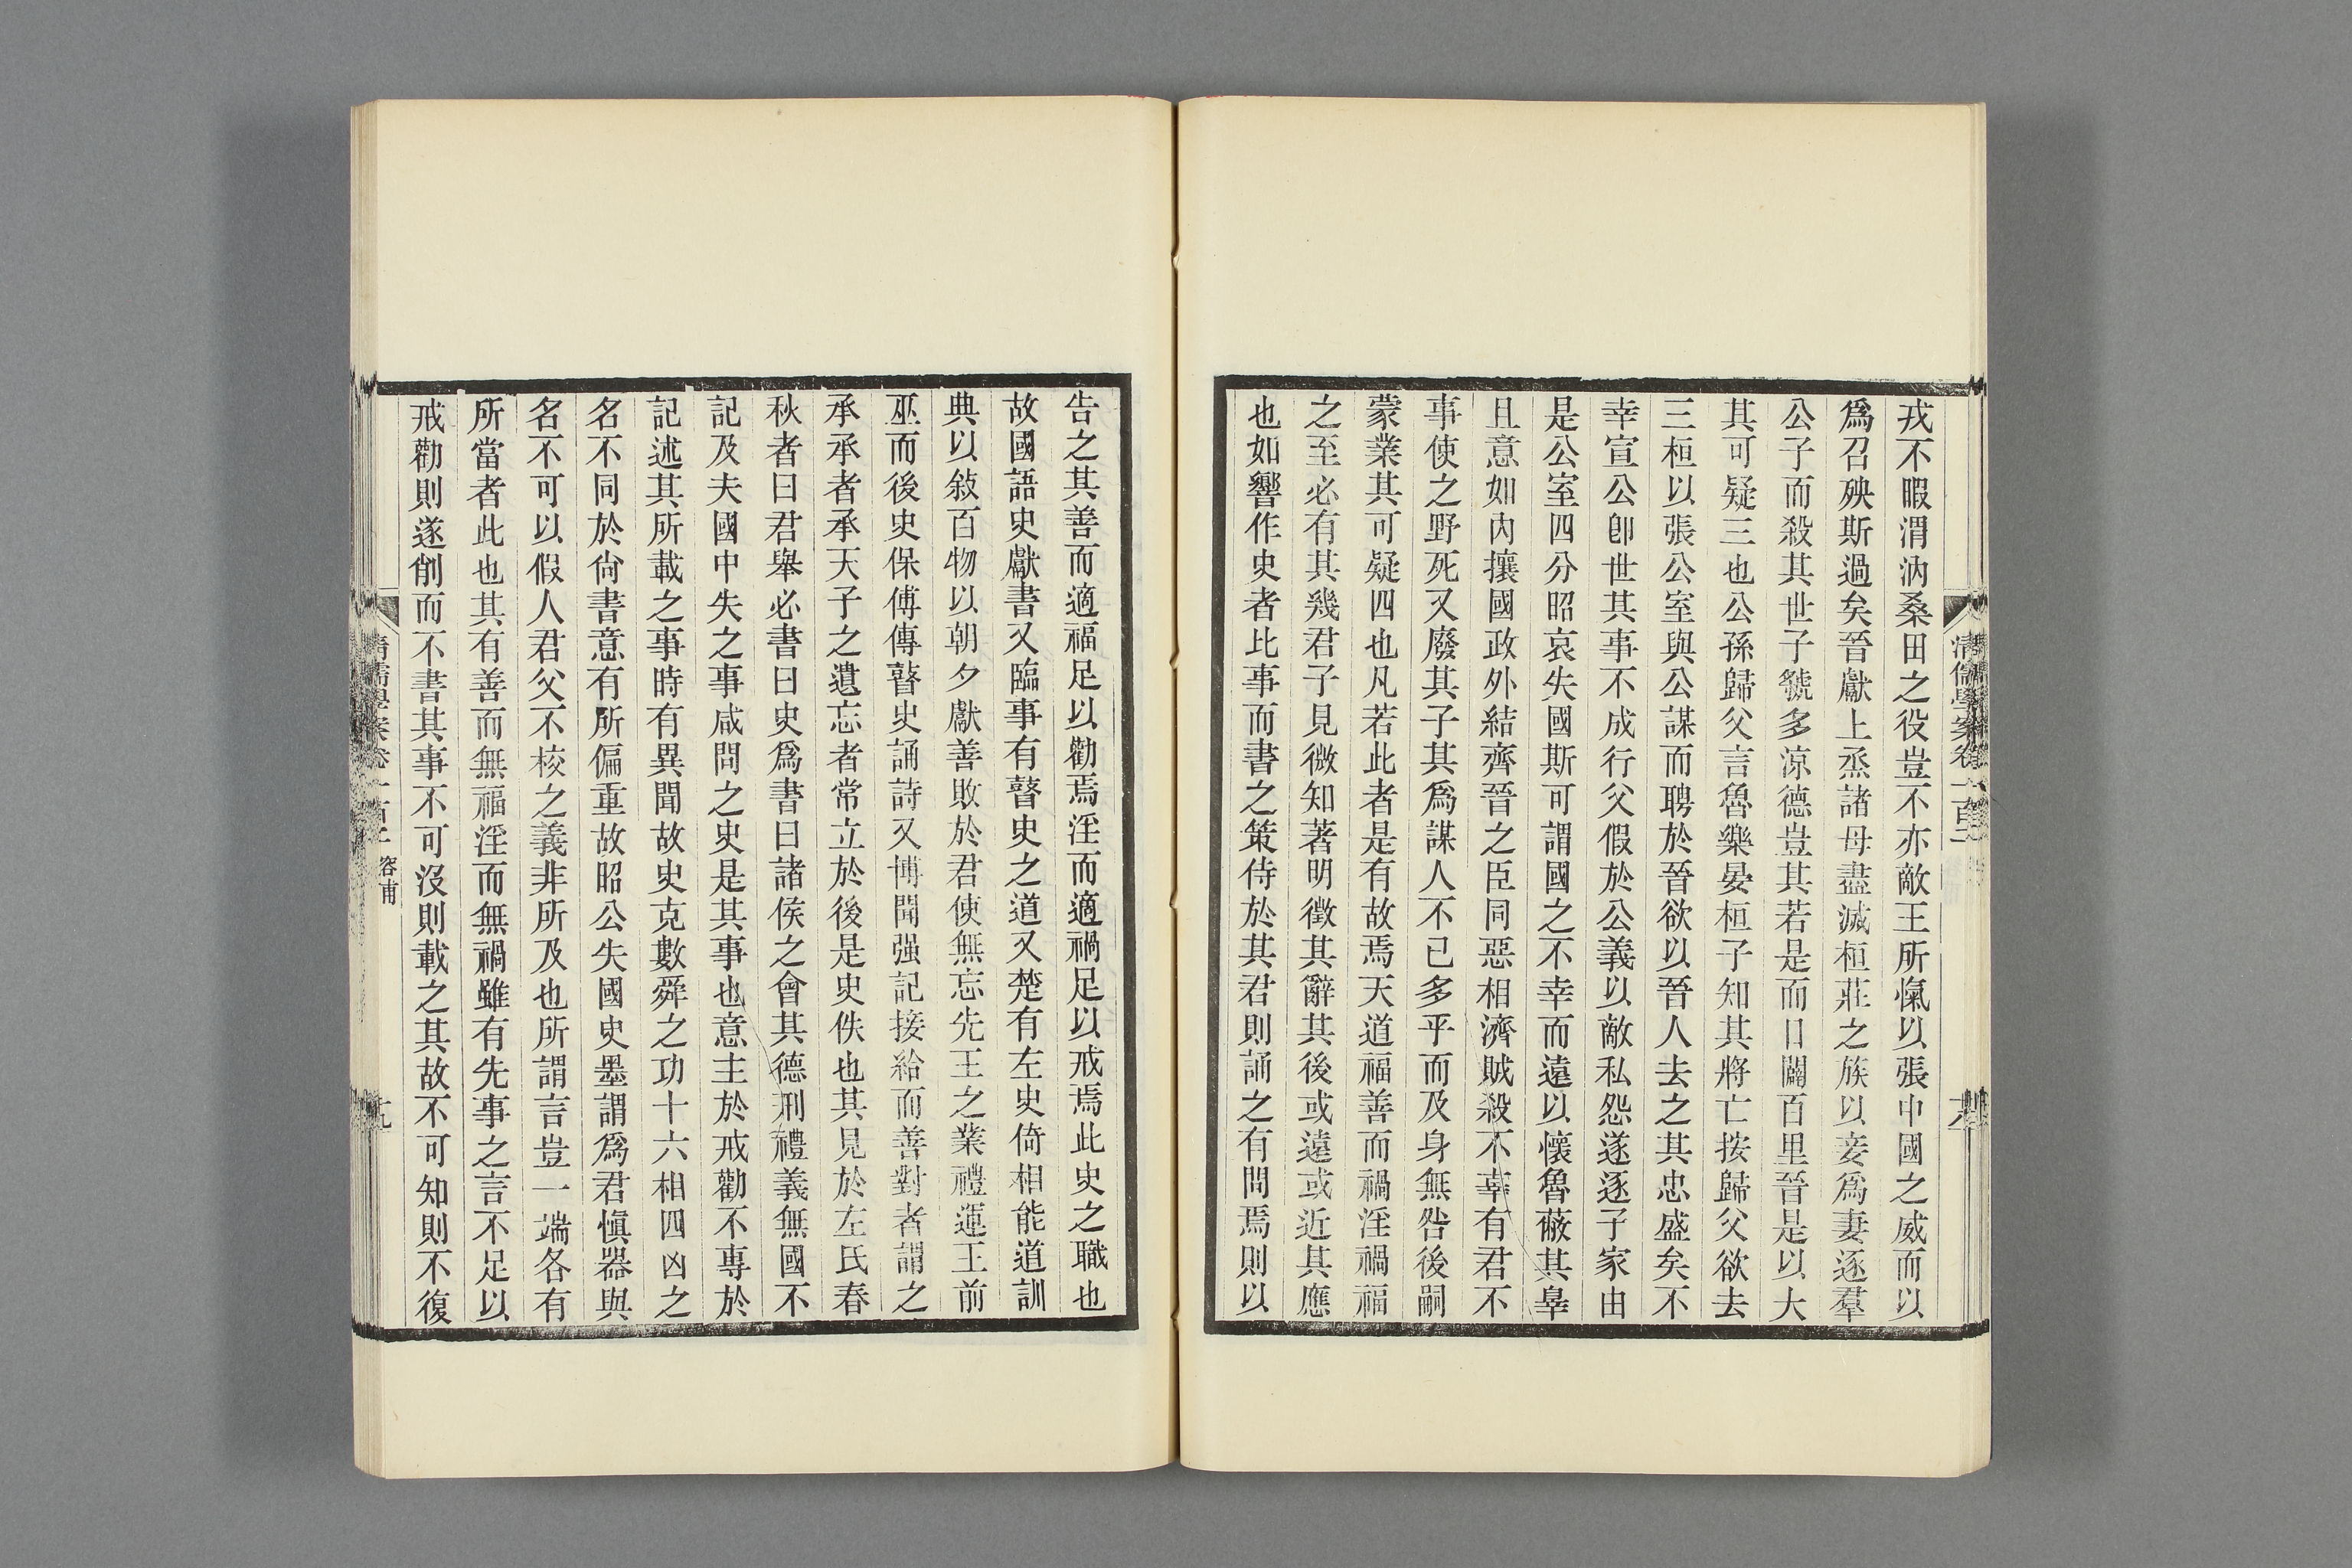 戎不暇渭汭桑田之役豈不亦敵王所愾以張中國之威而以
爲召殃斯過矣晉獻上烝諸母盡滅桓莊之族以妾爲妻逐羣
公子而殺其世子虢多涼德豈其若是而日闢百里晉是以大
其可疑三也公孫歸父言魯樂晏桓子知其將亡按歸父欲去
三桓以張公室與公謀而聘於晉欲以晉人去之其忠盛矣不
幸宣公卽世其事不成行父假於公義以敵私怨遂逐子家由
是公室四分昭哀失國斯可謂國之不幸而遠以懷魯蔽其辠
且意如內攘國政外結齊晉之臣同惡相濟賊殺不辜有君不
事使之野死又廢其子其爲謀人不已多乎而及身無咎後嗣
蒙業其可疑四也凡若此者是有故焉天道福善而禍淫禍福
之至必有其幾君子見微知著明徵其辭其後或遠或近其應
也如響作史者比事而書之策侍於其君則誦之有問焉則以
告之其善而適福足以勸焉淫而適禍足以戒焉此史之職也
故國語史獻書又臨事有瞽史之道又楚有左史倚相能道訓
典以敍百物以朝夕獻善敗於君使無忘先王之業禮運王前
巫而後史保傅傳瞽史誦詩又博聞强記接給而善對者謂之
承承者承天子之遺忘者常立於後是史佚也其見於左氏春
秋者曰君舉必書曰史爲書曰諸侯之會其德刑禮義無國不
記及夫國中失之事咸問之史是其事也意主於戒勸不專於
記述其所載之事時有異聞故史克數舜之功十六相四凶之
名不同於尙書意有所偏重故昭公失國史墨謂爲君愼器與
名不可以假人君父不校之義非所及也所謂言豈一端各有
所當者此也其有善而無福淫而無禍雖有先事之言不足以
戒勸則遂削而不書其事不可沒則載之其故不可知則不復
清儒學案卷一百二 容甫
十九